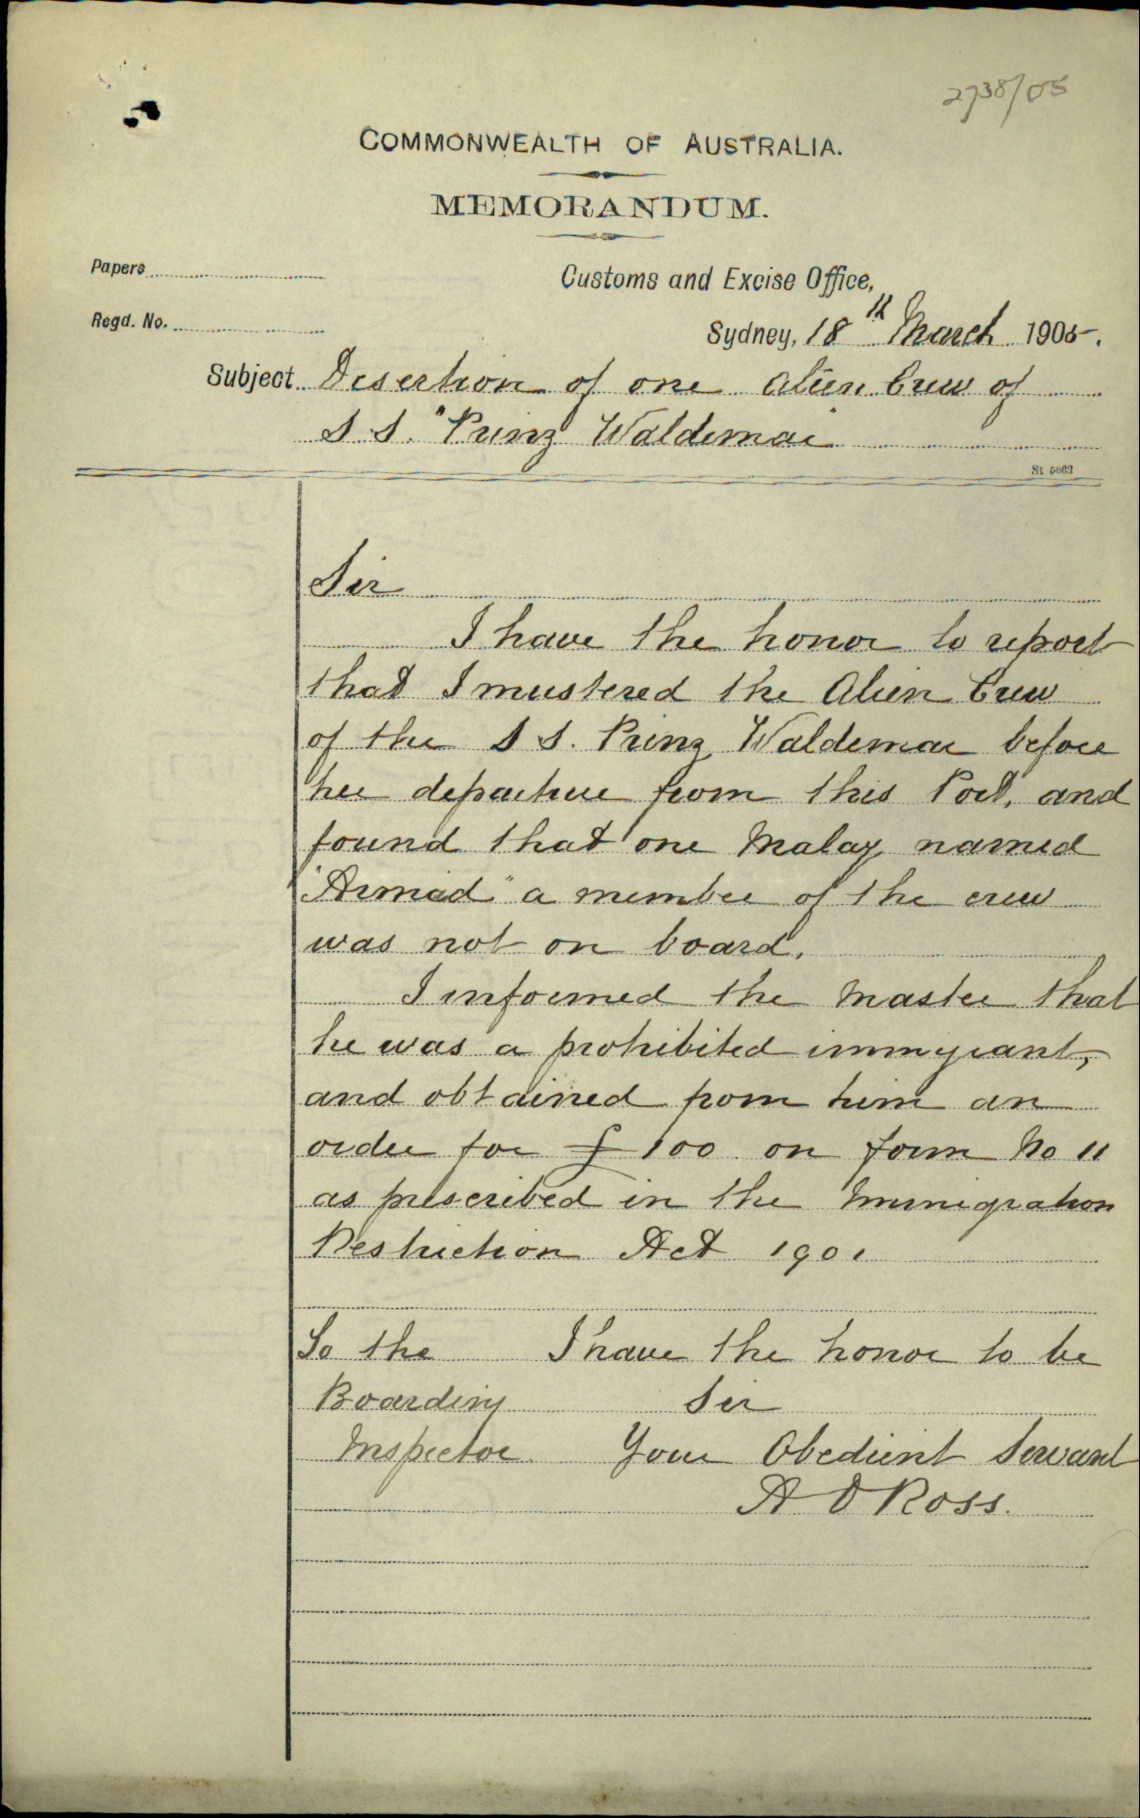 2738/05
COMMONWEALTH OF AUSTRALIA.
MEMORANDUM.
Papers
Customs and Excise Office,
Regd. No.
Sydney, 18th March 1905.
Subject Desertion of one Alien Crew of
S.S. "Prinz Waldemar"
Sir
I have the honor to report
that I mustered the Alien Crew
of the S S. Prinz Waldemar before
her departure from this Port, and
found that one Malay named
"Armad" a member of the crew
was not on board.
I informed the Master that
he was a prohibited immigrant,
and obtained from him an
order for £100 on form No 11
as prescribed in the Immigration
Restriction Act 1901
To the I have the honor to be
Boarding Sir
Inspector. Your Obedient Servant
A D Ross.